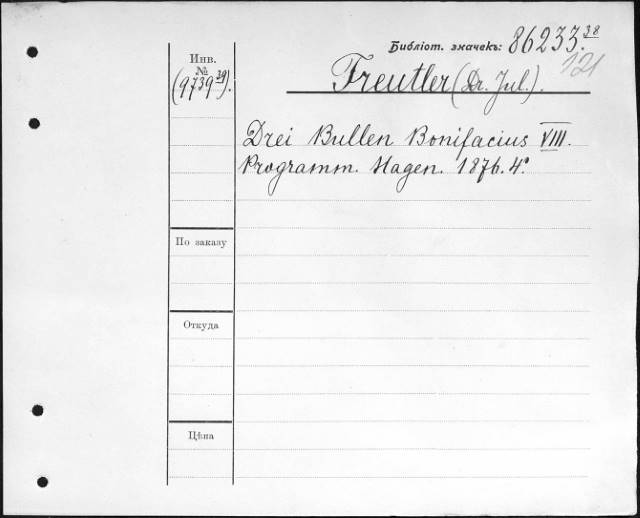 Библіот. значекъ: 86233.38
121
Инв.
№
(9739 39).
Freutler (Dr. Jul.).
Drei Bullen Bonifacius VIII.
Programm. Hagen. 1876. 4°
По заказу
Откуда
Цѣна